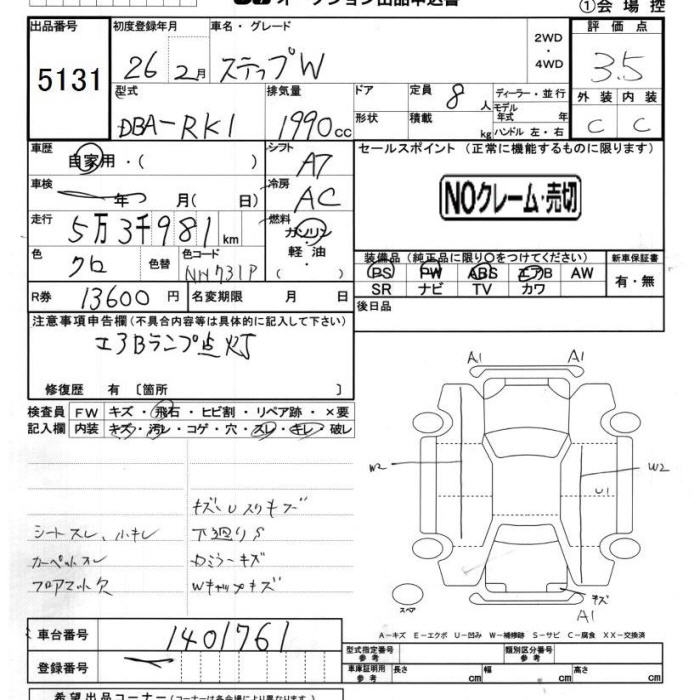 オークション出品申込書
①会場控
出品番号 5131
初度登録年月 26 2月
車名・グレード ステップW
2WD・4WD
評価点 3.5
外装 C 内装 C
型式 DBA-RK1
排気量 1990cc
ドア 形状
定員 8人
積載 kg
ディーラー・並行
モデル年式 年
ハンドル 左・右
車歴 自家用・( )
シフト A7
セールスポイント (正常に機能するものに限ります)
NOクレーム・売切
車検 年 月( 日)
冷房 AC
走行 5万3千981km
燃料 ガソリン 軽油 ( )
色 クロ 色替 色コード NH731P
装備品(純正品に限り〇をつけてください)
新車保証書
PS PW ABS エアB AW
SR ナビ TV カワ
有・無
R券 13600円 名変期限 月 日
後日品
注意事項申告欄(不具合内容等は具体的に記入して下さい)
エアBランプ点灯
修復歴 有 〔箇所 〕
検査員記入欄
FW キズ・飛石・ヒビ割・リペア跡・×要
内装 キズ・汚レ・コゲ・穴・スレ・キレ・破レ
A1 A1
W2 W2
U1
キズ、Uスリキズ
シートスレ、小キレ 下廻りS
カーペットスレ Rミラーキズ
フロアマット欠 Wキャップキズ
スペア
キズ
A1
A-キズ E-エクボ U-凹み W-補修跡 S-サビ C-腐食 XX-交換済
車台番号 1401761
登録番号
型式指定番号 参考
類別区分番号 参考
車庫証明用 参考 長さ cm 幅 cm 高さ cm
希望出品コーナー(コーナーは各会場により異なります)